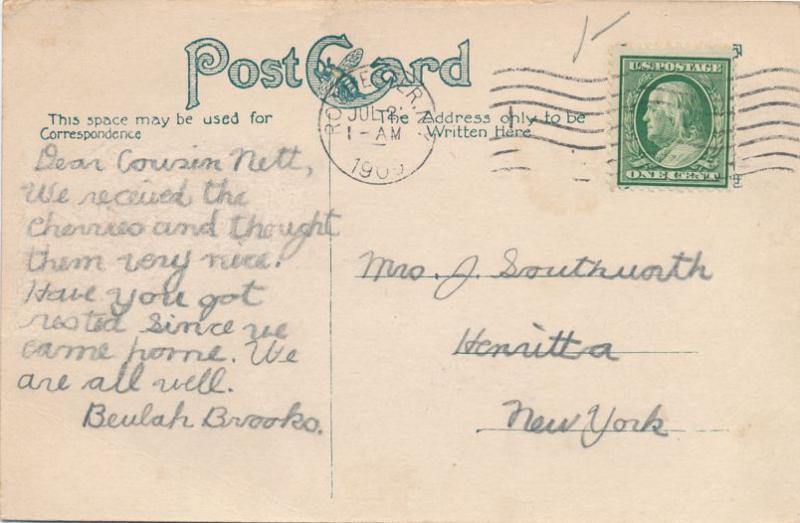 Post Card
This space may be used for
Correspondence
The Address only to be
Written Here
ROCHESTER, N.Y.
JUL 2
1-AM
1909
U.S. POSTAGE
ONE CENT
Dear Cousin Nett,
We received the
cherries and thought
them very nice.
Have you got
rested since we
came home. We
are all well.
Beulah Brooks.
Mrs. J. Southworth
Henritta
New York